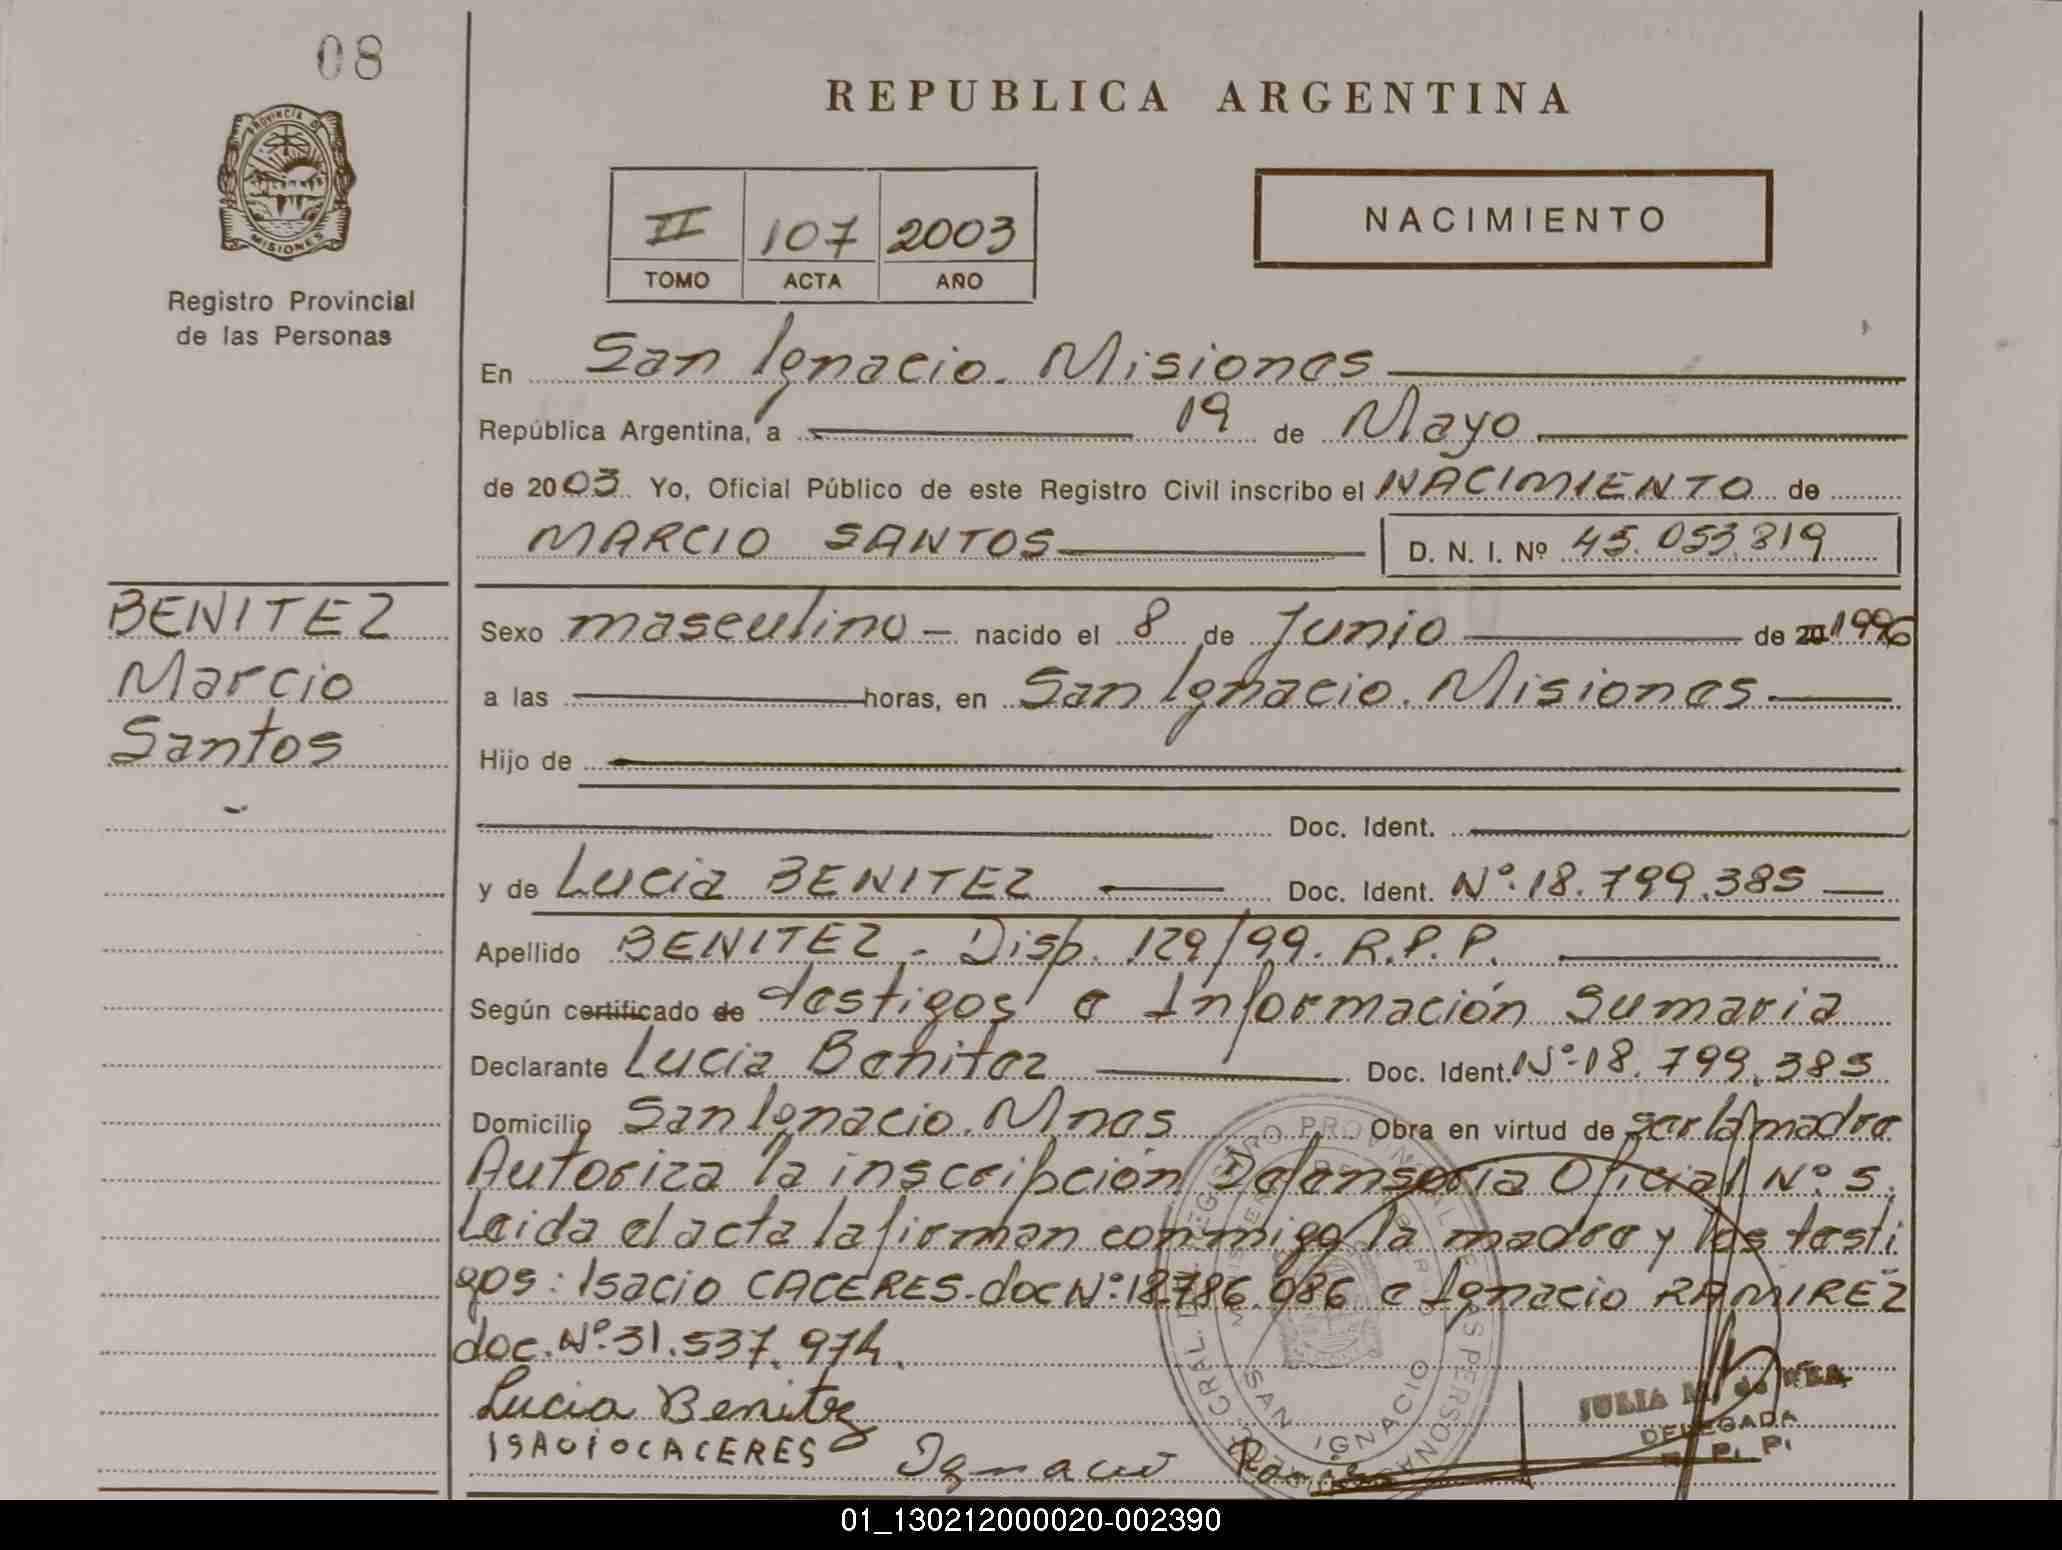 08
REPUBLICA ARGENTINA
PROVINCIA D
MISIONES
Registro Provincial
de las Personas
II 107 2003
TOMO ACTA AÑO
NACIMIENTO
En San Ignacio. Misiones
República Argentina, a 19 de Mayo
de 2003. Yo, Oficial Público de este Registro Civil inscribo el NACIMIENTO de
MARCIO SANTOS D. N. I. Nº 45.053.819
BENITEZ
Marcio
Santos
Sexo masculino – nacido el 8 de Junio de 20 1996
a las horas, en San Ignacio. Misiones
Hijo de
Doc. Ident.
y de Lucia BENITEZ Doc. Ident. Nº.18.799.385
Apellido BENITEZ - Disp. 129/99. R.P.P.
Según certificado de testigos e Información Sumaria
Declarante Lucia Benitez Doc. Ident. Nº.18.799.385
Domicilio San Ignacio. Mnes Obra en virtud de ser la madre
Autoriza la inscripción Defensoria Oficial Nº 5.
Leida el acta la firman conmigo la madre y los testi
gos: Isacio CACERES. doc Nº:18.786.086 e Ignacio RAMIREZ
doc. Nº.31.537.974.
Lucia Benitez
ISACIO CACERES Ignacio
SAN IGNACIO
JULIA M. de
DELEGADA
R. P. P.
01_130212000020-002390